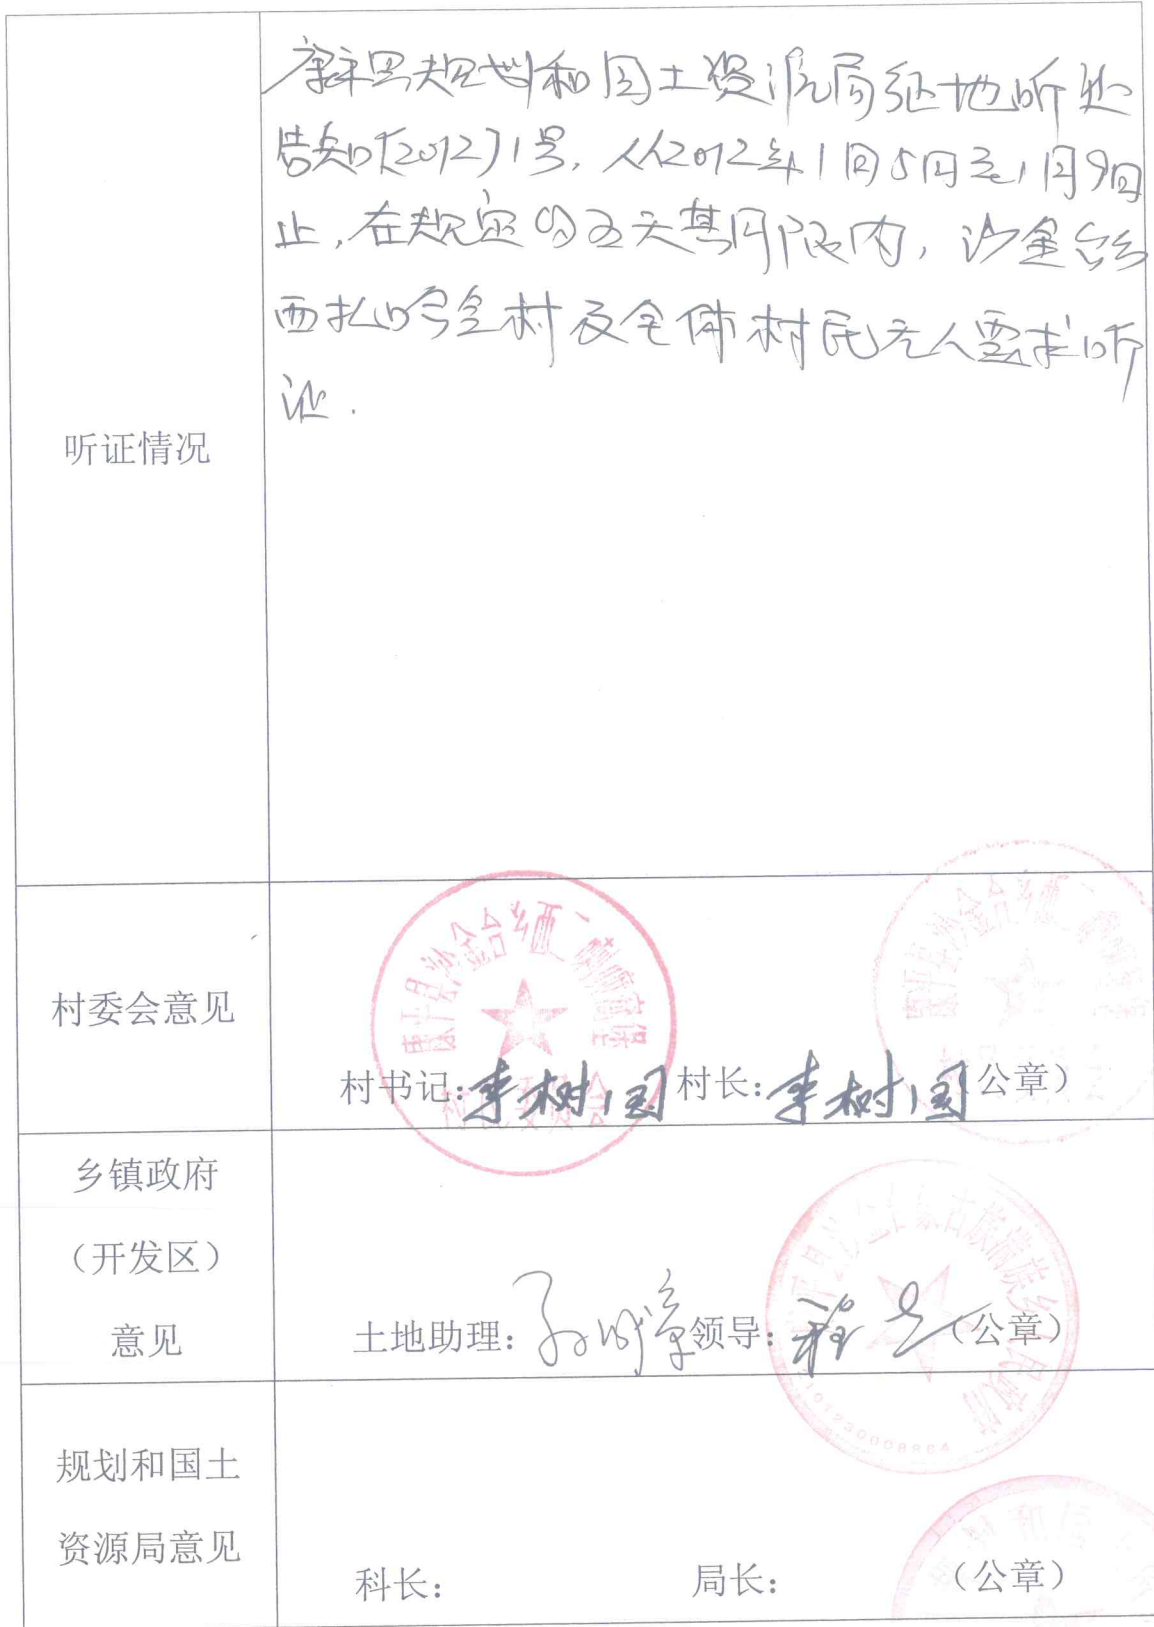 康平县规划和国土资源局征地听证
告知[2012]1号,从2012年1月5日至1月9日
止,在规定的五天期限内,沙金台
西扎哈气村及全体村民无人要求听
证.
听证情况
村委会意见
村书记:李树国 村长:李树国(公章)
乡镇政府
(开发区)
意见
土地助理: 领导: (公章)
规划和国土
资源局意见
科长: 局长: (公章)